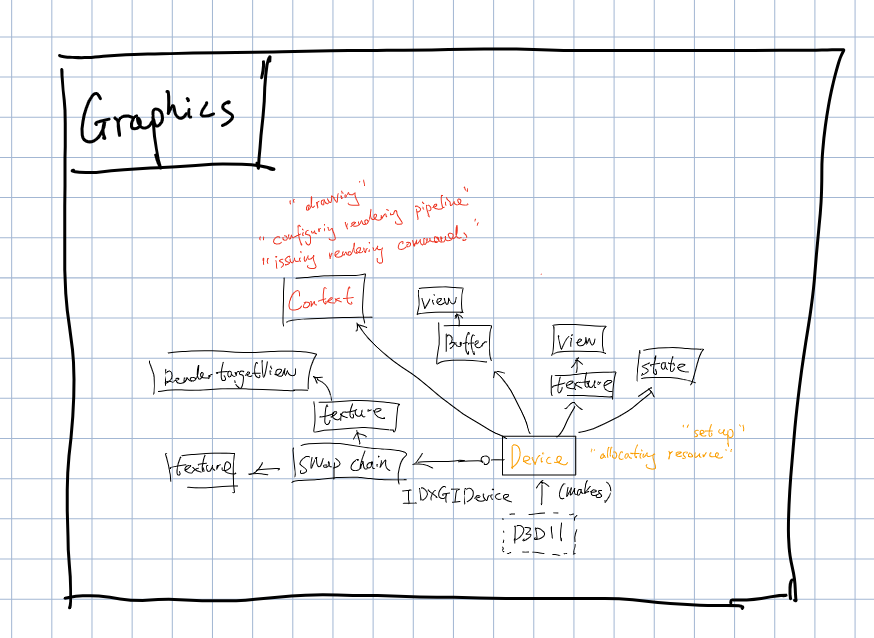 Graphics
"drawing"
"configuring rendering pipeline"
"issuing rendering commands"
Context
view
Buffer
View
texture
state
RendertargetView
texture
"set up"
"allocating resource"
Device
swap chain
texture
IDXGIDevice
(makes)
D3D11